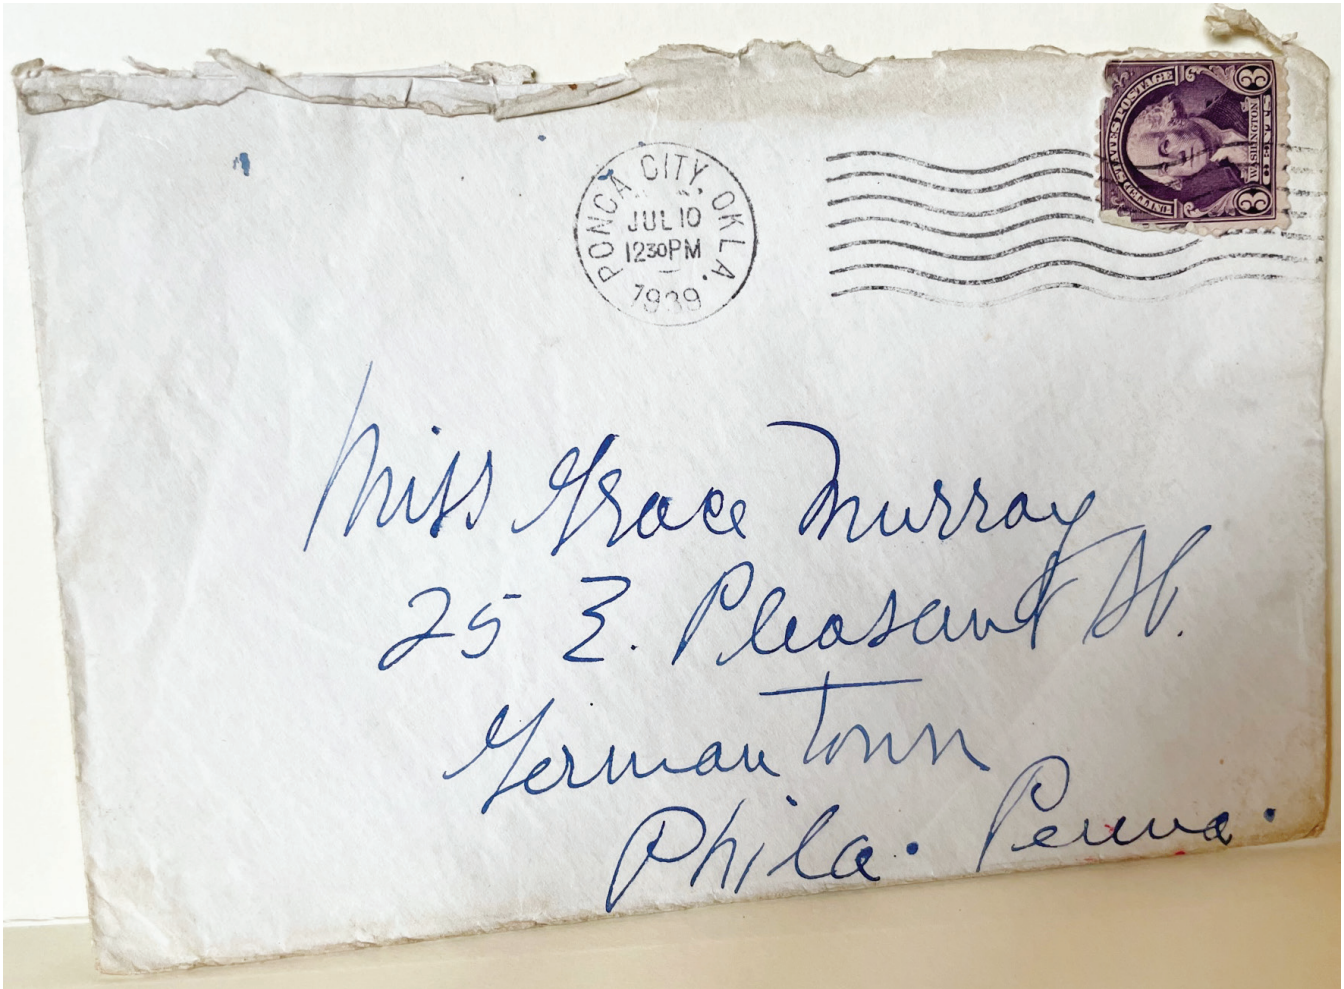 PONCA CITY, OKLA.
JUL 10
12 30 PM
1939
UNITED STATES POSTAGE
3 WASHINGTON 3
CENTS
Miss Grace Murray
25 E. Pleasant St.
Germantown
Phila. Penna.